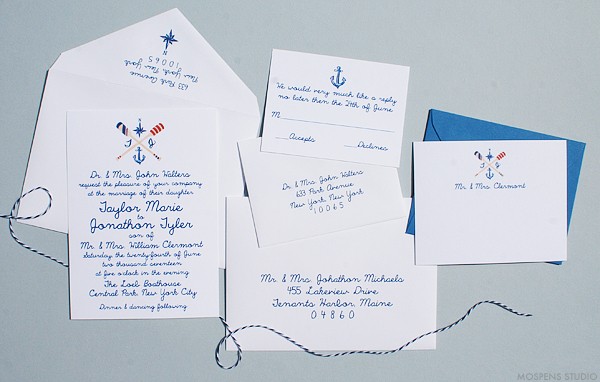 N
633 Park Avenue
New York New York
10065
T J
Dr. & Mrs. John Walters
request the pleasure of your company
at the marriage of their daughter
Taylor Marie
to
Jonathon Tyler
son of
Mr. & Mrs. William Clermont
Saturday the twenty fourth of June
two thousand seventeen
at five o'clock in the evening
The Loeb Boathouse
Central Park, New York City
Dinner & dancing following
We would very much like a reply
no later then the 24th of June
M
Accepts Declines
Dr. & Mrs. John Walters
633 Park Avenue
New York New York
10065
Mr. & Mrs. Johathon Michaels
455 Lakeview Drive
Tenants Harbor, Maine
04860
T J
Mr & Mrs Clermont
MOSPENS STUDIO